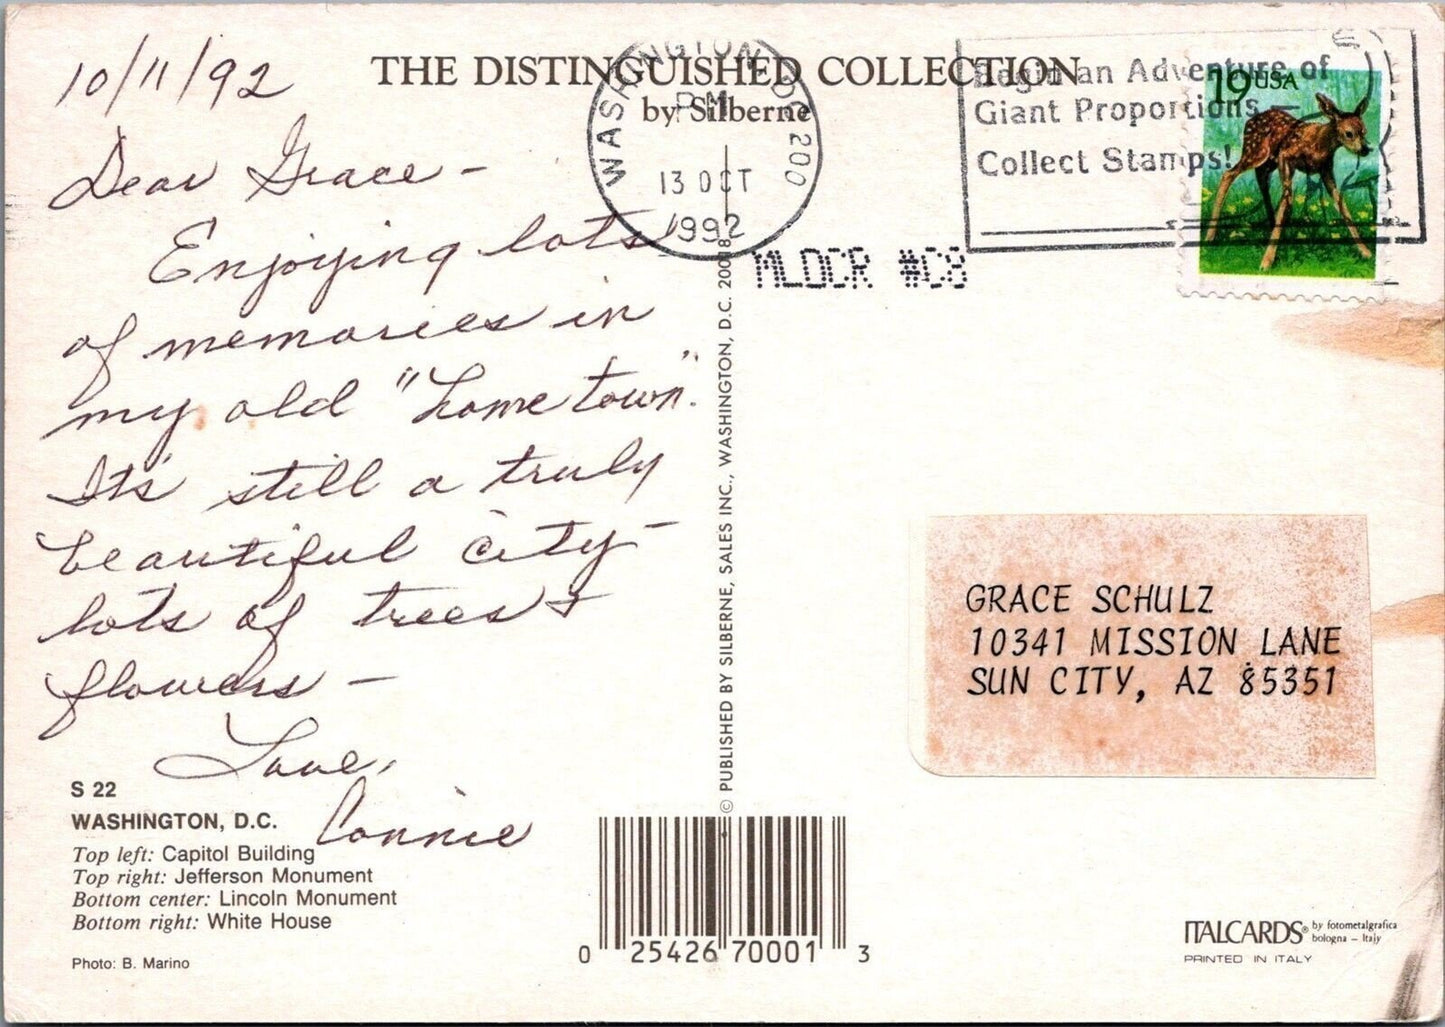 10/11/92
THE DISTINGUISHED COLLECTION
by Silberne
WASHINGTON, DC 200
PM
13 OCT
1992
Begin an Adventure of
Giant Proportions –
Collect Stamps!
19 USA
MLDCR #C8
Dear Grace –
Enjoying lots
of memories in
my old "home town".
It's still a truly
beautiful city –
lots of trees &
flowers –
Love,
Connie
S 22
WASHINGTON, D.C.
Top left: Capitol Building
Top right: Jefferson Monument
Bottom center: Lincoln Monument
Bottom right: White House
Photo: B. Marino
© PUBLISHED BY SILBERNE, SALES INC., WASHINGTON, D.C. 20018
GRACE SCHULZ
10341 MISSION LANE
SUN CITY, AZ 85351
0 25426 70001 3
ITALCARDS® by fotometalgrafica
bologna – Italy
PRINTED IN ITALY